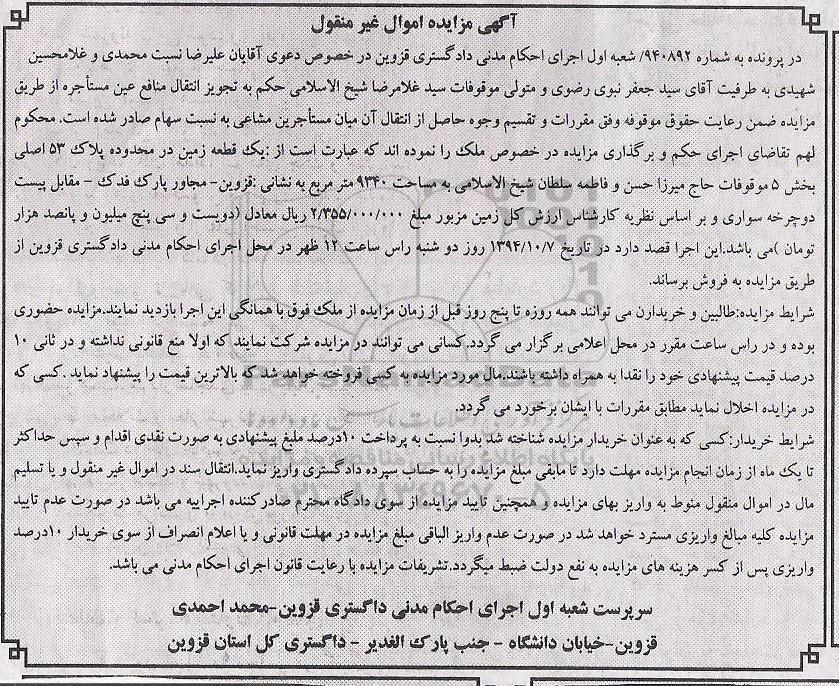 آگهی مزایده اموال غیر منقول
در پرونده به شماره ۹۴۰۸۹۲/ شعبه اول اجرای احکام مدنی دادگستری قزوین در خصوص دعوی آقایان علیرضا نسبت محمدی و غلامحسین
شهیدی به طرفیت آقای سید جعفر نبوی رضوی و متولی موقوفات سید غلامرضا شیخ الاسلامی حکم به تجویز انتقال منافع عین مستأجره از طریق
مزایده ضمن رعایت حقوق موقوفه وفق مقررات و تقسیم وجوه حاصل از انتقال آن میان مستأجرین مشاعی به نسبت سهام صادر شده است. محکوم
لهم تقاضای اجرای حکم و برگذاری مزایده در خصوص ملک را نموده اند که عبارت است از :یک قطعه زمین در محدوده پلاک ۵۳ اصلی
بخش ۵ موقوفات حاج میرزا حسن و فاطمه سلطان شیخ الاسلامی به مساحت ۹۳۴۰ متر مربع به نشانی :قزوین- مجاور پارک فدک – مقابل پیست
دوچرخه سواری و بر اساس نظریه کارشناس ارزش کل زمین مزبور مبلغ ۲/۳۵۵/۰۰۰/۰۰۰ ریال معادل (دویست و سی پنج میلیون و پانصد هزار
تومان )می باشد.این اجرا قصد دارد در تاریخ ۱۳۹۴/۱۰/۷ روز دو شنبه راس ساعت ۱۲ ظهر در محل اجرای احکام مدنی دادگستری قزوین از
طریق مزایده به فروش برساند.
شرایط مزایده:طالبین و خریدارن می توانند همه روزه تا پنج روز قبل از زمان مزایده از ملک فوق با همانگی این اجرا بازدید نمایند.مزایده حضوری
بوده و در راس ساعت مقرر در محل اعلامی برگزار می گردد.کسانی می توانند در مزایده شرکت نمایند که اولا منع قانونی نداشته و در ثانی ۱۰
درصد قیمت پیشنهادی خود را نقدا به همراه داشته باشند.مال مورد مزایده به کسی فروخته خواهد شد که بالاترین قیمت را پیشنهاد نماید .کسی که
در مزایده اخلال نماید مطابق مقررات با ایشان برخورد می گردد.
شرایط خریدار:کسی که به عنوان خریدار مزایده شناخته شد بدوا نسبت به پرداخت ۱۰درصد ملبغ پیشنهادی به صورت نقدی اقدام و سپس حداکثر
تا یک ماه از زمان انجام مزایده مهلت دارد تا مابقی مبلغ مزایده را به حساب سپرده دادگستری واریز نماید.انتقال سند در اموال غیر منقول و یا تسلیم
مال در اموال منقول منوط به واریز بهای مزایده و همچنین تایید مزایده از سوی دادگاه محترم صادرکننده اجراییه می باشد در صورت عدم تایید
مزایده کلیه مبالغ واریزی مسترد خواهد شد در صورت عدم واریز الباقی مبلغ مزایده در مهلت قانونی و یا اعلام انصراف از سوی خریدار ۱۰درصد
واریزی پس از کسر هزینه های مزایده به نفع دولت ضبط میگردد.تشریفات مزایده با رعایت قانون اجرای احکام مدنی می باشد.
سرپرست شعبه اول اجرای احکام مدنی داگستری قزوین-محمد احمدی
قزوین-خیابان دانشگاه – جنب پارک الغدیر – داگستری کل استان قزوین